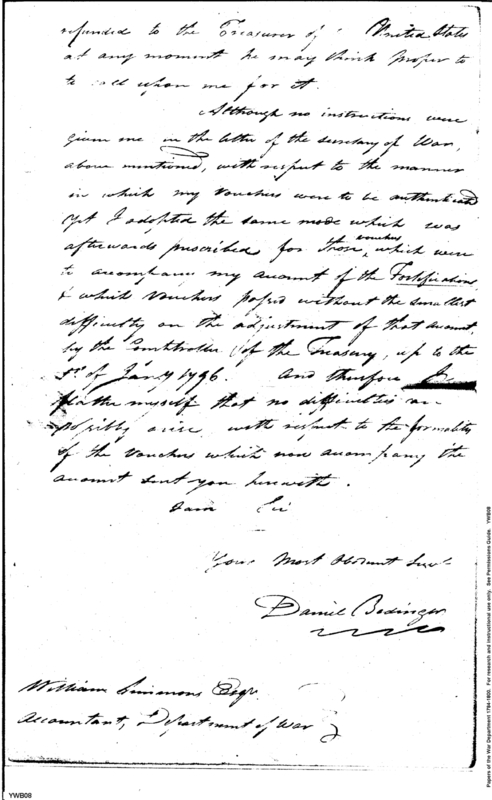 refunded to the Treasurer of United States
at any moment he may think proper to
to call upon me for it.
Although no instructions were
given me in the letter of the secretary of War,
above mentioned, with respect to the manner
in which my Vouchers were to be authenticated
yet I adopted the same mode which was
afterwards prescribed for those vouchers which were
to accompany my account of the Fortifications,
& which Vouchers passed without the smallest
difficulty on the adjustment of that account,
by the Comptroller of the Treasury, up to the
1st of Jany 1796. And therefore I
flatter myself that no difficulties can
possibly arise with respect to the formality
of the Vouchers which now accompany the
account sent you herewith.
I am Sir
Your Most Obedient Servt
Daniel Bedinger
William Simmons Esqr.
Accountant, Department of War
YWB08
Papers of the War Department 1784-1800. For research and instructional use only. See Permissions Guide. YWB08